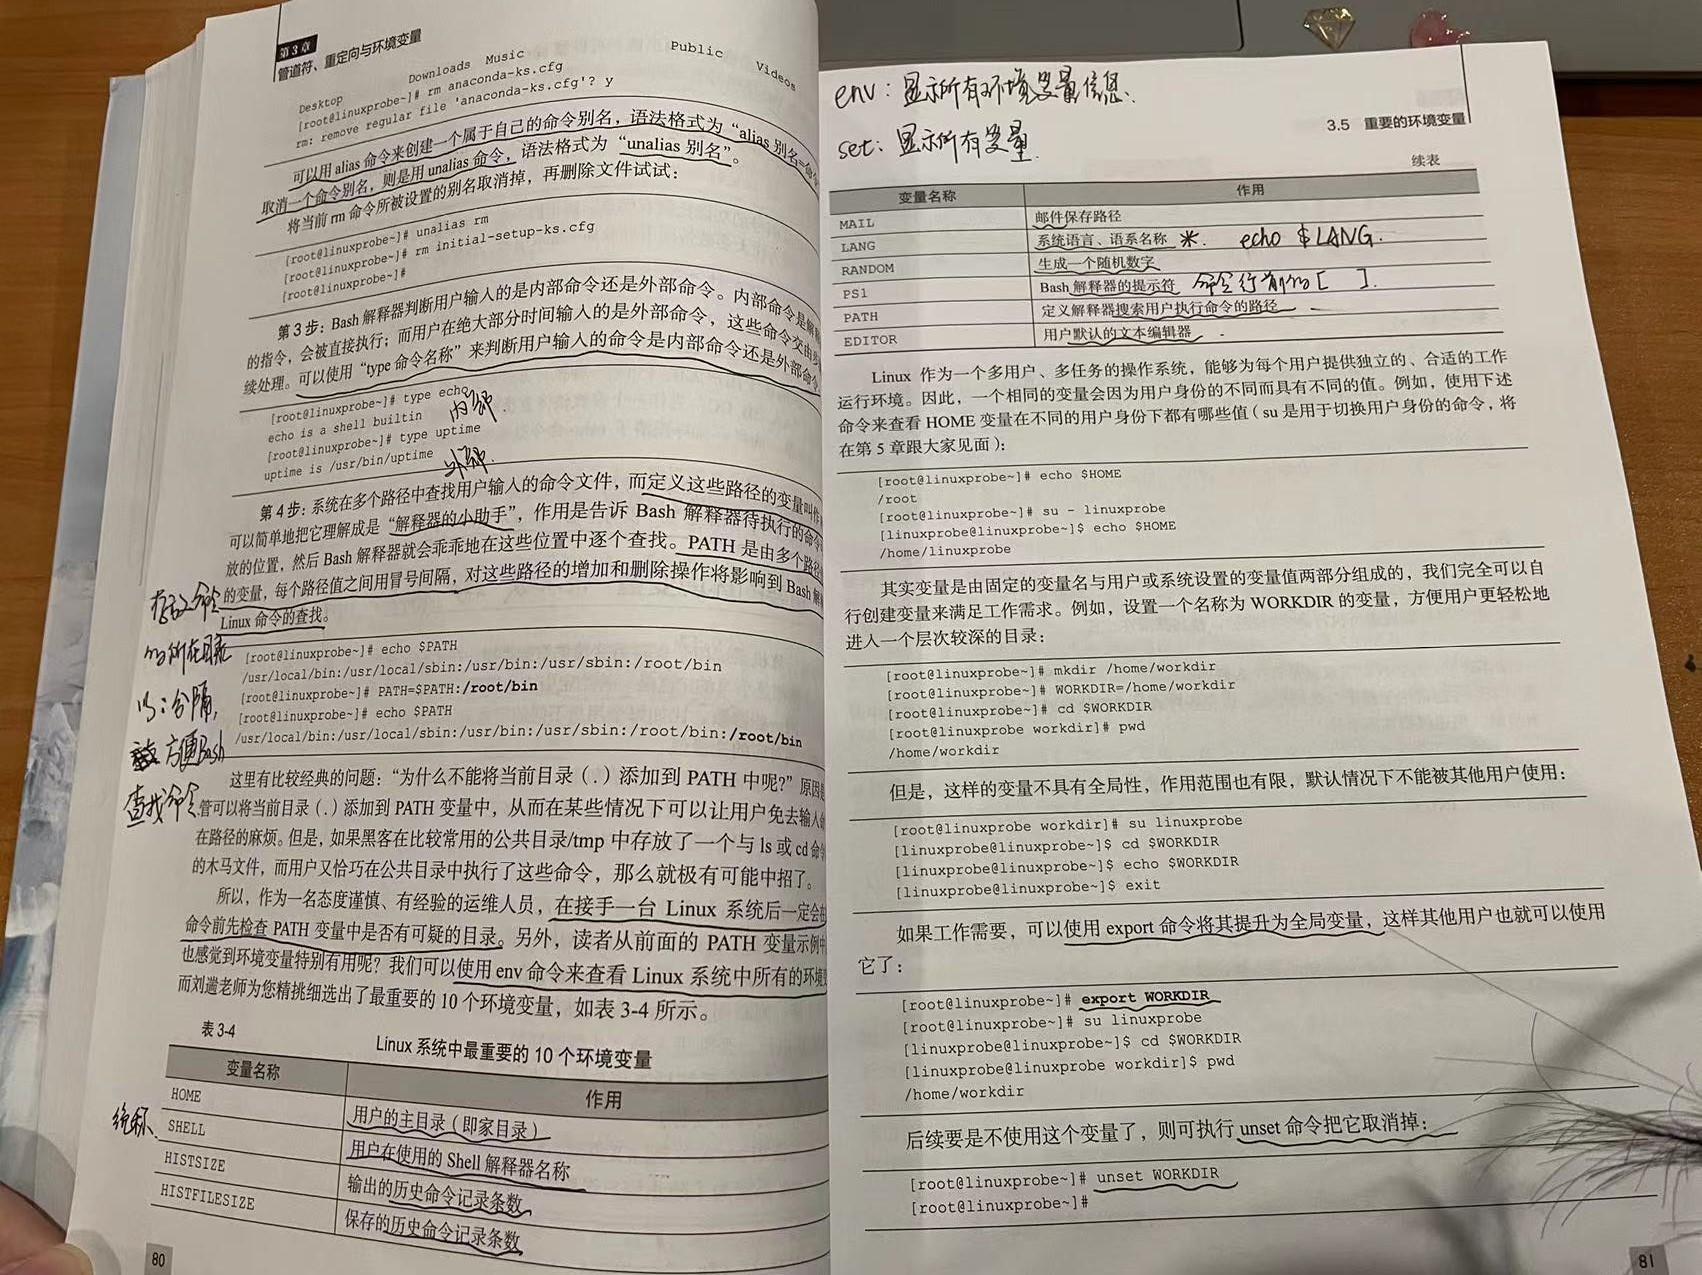 第3章
管道符、重定向与环境变量
Desktop Downloads Music Public Videos
[root@linuxprobe~]# rm anaconda-ks.cfg
rm: remove regular file 'anaconda-ks.cfg'? y
可以用 alias 命令来创建一个属于自己的命令别名，语法格式为“alias 别名=命令
取消一个命令别名，则是用 unalias 命令，语法格式为“unalias 别名”。
将当前 rm 命令所被设置的别名取消掉，再删除文件试试：
[root@linuxprobe~]# unalias rm
[root@linuxprobe~]# rm initial-setup-ks.cfg
[root@linuxprobe~]#
第3步：Bash 解释器判断用户输入的是内部命令还是外部命令。内部命令是解释
的指令，会被直接执行；而用户在绝大部分时间输入的是外部命令，这些命令交由步
续处理。可以使用“type 命令名称”来判断用户输入的命令是内部命令还是外部命令
[root@linuxprobe~]# type echo
echo is a shell builtin 内部
[root@linuxprobe~]# type uptime
uptime is /usr/bin/uptime 外部.
第4步：系统在多个路径中查找用户输入的命令文件，而定义这些路径的变量叫作
可以简单地把它理解成是“解释器的小助手”，作用是告诉 Bash 解释器待执行的命令
放的位置，然后 Bash 解释器就会乖乖地在这些位置中逐个查找。PATH 是由多个路径
的变量，每个路径值之间用冒号间隔，对这些路径的增加和删除操作将影响到 Bash 解释
Linux 命令的查找。
存放命令
的所在目录
以:分隔,
方便Bash
查找命令
[root@linuxprobe~]# echo $PATH
/usr/local/bin:/usr/local/sbin:/usr/bin:/usr/sbin:/root/bin
[root@linuxprobe~]# PATH=$PATH:/root/bin
[root@linuxprobe~]# echo $PATH
/usr/local/bin:/usr/local/sbin:/usr/bin:/usr/sbin:/root/bin:/root/bin
这里有比较经典的问题：“为什么不能将当前目录（.）添加到 PATH 中呢?” 原因是
管可以将当前目录（.）添加到 PATH 变量中，从而在某些情况下可以让用户免去输入命
在路径的麻烦。但是，如果黑客在比较常用的公共目录/tmp 中存放了一个与 ls 或 cd 命令
的木马文件，而用户又恰巧在公共目录中执行了这些命令，那么就极有可能中招了。
所以，作为一名态度谨慎、有经验的运维人员，在接手一台 Linux 系统后一定会在
命令前先检查 PATH 变量中是否有可疑的目录。另外，读者从前面的 PATH 变量示例中
也感觉到环境变量特别有用呢？我们可以使用 env 命令来查看 Linux 系统中所有的环境变
而刘遄老师为您精挑细选出了最重要的 10 个环境变量，如表 3-4 所示。
表 3-4 Linux 系统中最重要的 10 个环境变量
变量名称 作用
HOME 用户的主目录（即家目录）
SHELL 用户在使用的 Shell 解释器名称
HISTSIZE 输出的历史命令记录条数
HISTFILESIZE 保存的历史命令记录条数
80
env：显示所有环境变量信息.
set：显示所有变量.
3.5 重要的环境变量
续表
变量名称 作用
MAIL 邮件保存路径
LANG 系统语言、语系名称 米. echo $LANG.
RANDOM 生成一个随机数字
PS1 Bash 解释器的提示符 命令行前的[ ].
PATH 定义解释器搜索用户执行命令的路径
EDITOR 用户默认的文本编辑器
Linux 作为一个多用户、多任务的操作系统，能够为每个用户提供独立的、合适的工作
运行环境。因此，一个相同的变量会因为用户身份的不同而具有不同的值。例如，使用下述
命令来查看 HOME 变量在不同的用户身份下都有哪些值（su 是用于切换用户身份的命令，将
在第 5 章跟大家见面）：
[root@linuxprobe~]# echo $HOME
/root
[root@linuxprobe~]# su - linuxprobe
[linuxprobe@linuxprobe~]$ echo $HOME
/home/linuxprobe
其实变量是由固定的变量名与用户或系统设置的变量值两部分组成的，我们完全可以自
行创建变量来满足工作需求。例如，设置一个名称为 WORKDIR 的变量，方便用户更轻松地
进入一个层次较深的目录：
[root@linuxprobe~]# mkdir /home/workdir
[root@linuxprobe~]# WORKDIR=/home/workdir
[root@linuxprobe~]# cd $WORKDIR
[root@linuxprobe workdir]# pwd
/home/workdir
但是，这样的变量不具有全局性，作用范围也有限，默认情况下不能被其他用户使用：
[root@linuxprobe workdir]# su linuxprobe
[linuxprobe@linuxprobe~]$ cd $WORKDIR
[linuxprobe@linuxprobe~]$ echo $WORKDIR
[linuxprobe@linuxprobe~]$ exit
如果工作需要，可以使用 export 命令将其提升为全局变量，这样其他用户也就可以使用
它了：
[root@linuxprobe~]# export WORKDIR
[root@linuxprobe~]# su linuxprobe
[linuxprobe@linuxprobe~]$ cd $WORKDIR
[linuxprobe@linuxprobe workdir]$ pwd
/home/workdir
后续要是不使用这个变量了，则可执行 unset 命令把它取消掉：
[root@linuxprobe~]# unset WORKDIR
[root@linuxprobe~]#
81